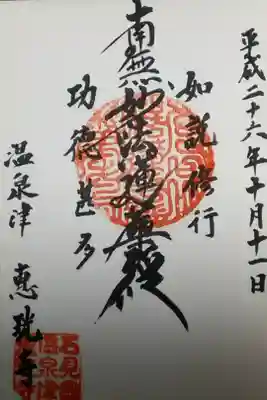 平成二十六年十月十一日
如説修行
南無妙法蓮華經
功德甚多
温泉津 惠珖寺